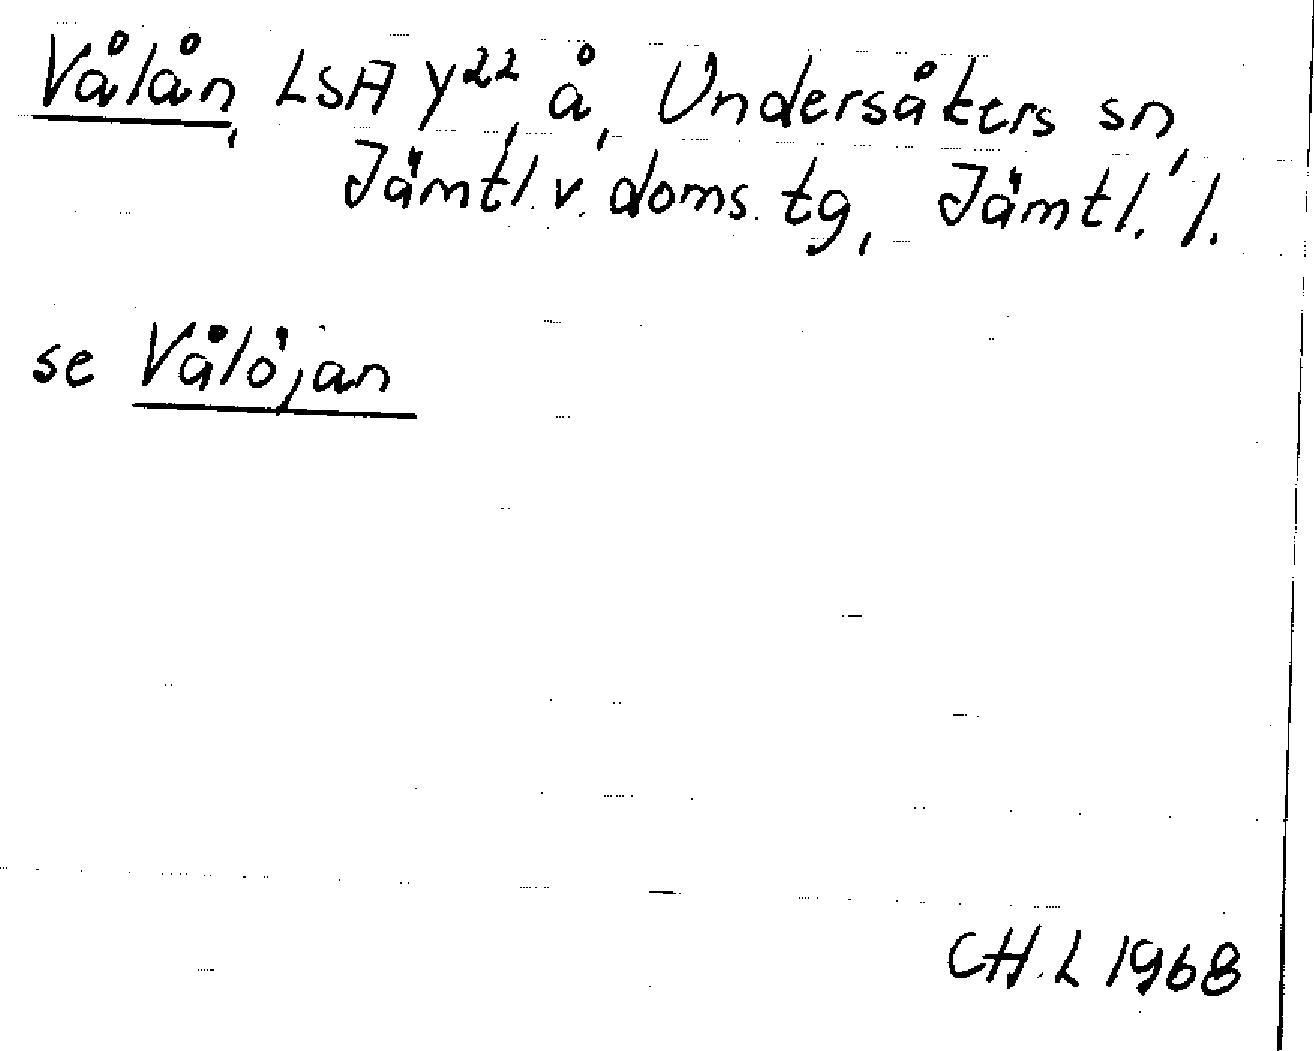 Vålån, LSA Y²², å, Undersåkers sn,
Jämtl. v. doms. tg, Jämtl. l.
se Vålöjan
CH. L 1968